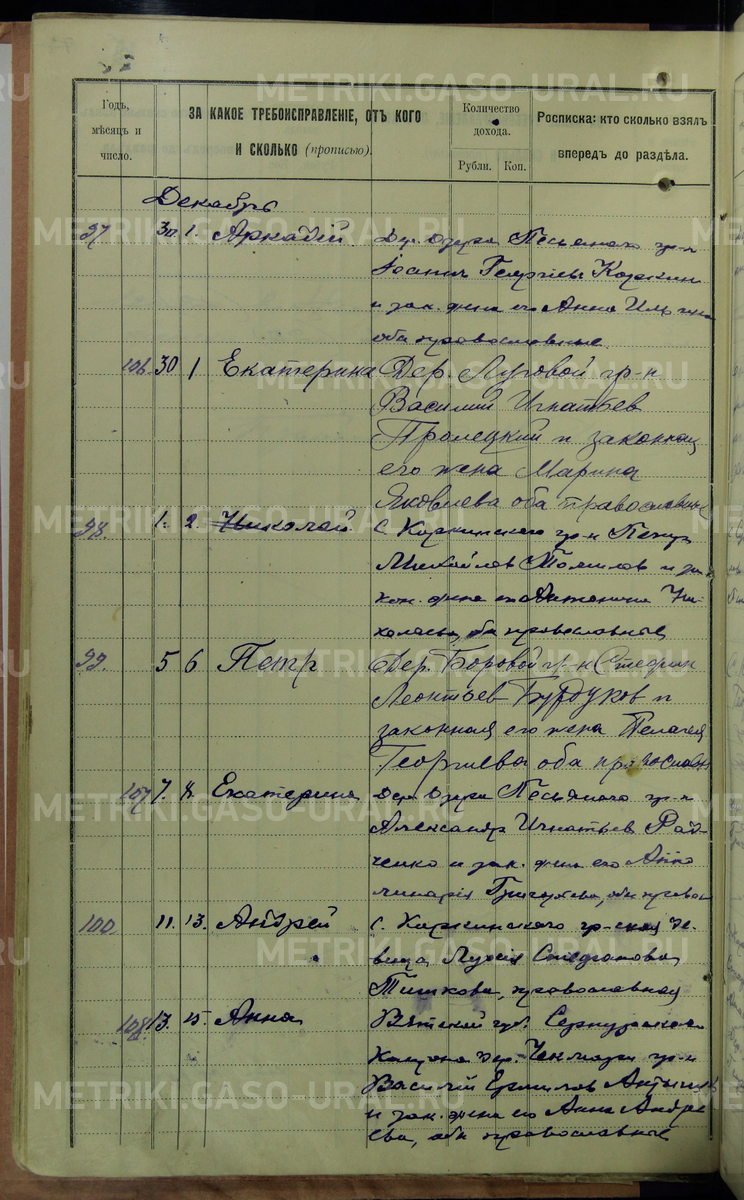 Годъ, мѣсяцъ и число.
ЗА КАКОЕ ТРЕБОИСПРАВЛЕНІЕ, ОТЪ КОГО И СКОЛЬКО (прописью).
Количество дохода.
Рубли. Коп.
Росписка: кто сколько взялъ впередъ до раздѣла.
Декабрь
97 30 1. Аркадій Дер. Озера Песьяного гр-н
Іоанн Георгіев Коркин
и зак. жена его Анна Ильина
оба православные
106. 30 1 Екатерина Дер. Луговой гр-н
Василий Игнатьев
Пролецкий и законная
его жена Марина
Яковлева оба православные
98. 1. 2. Николай С. Каркинского гр-н Петр
Михайлов Томилов и за-
кон. жена его Ни-
колаева, оба православные
99. 5 6 Петр Дер. Боровой гр-н Стефан
Леонтьев Бурдуков и
законная его жена Пелагея
Георгиева оба православн
107 7. 8. Екатерина Дер. Озера Песьяного гр-н
Александр Игнатьев Рад-
ченко и зак. жена его Апо-
линарія Григорьева, оба правос
100 11. 13. Андрей С. Каркинского гр-ская де-
вица Стефановна
Тишкова, православная
108. 13. 15. Анна Вятской губ. Сернурского
Кантона дер. гр-н
Василій Ермилов
и зак. жена его Анна Андре-
ева, оба православные
METRIKI.GASO-URAL.RU